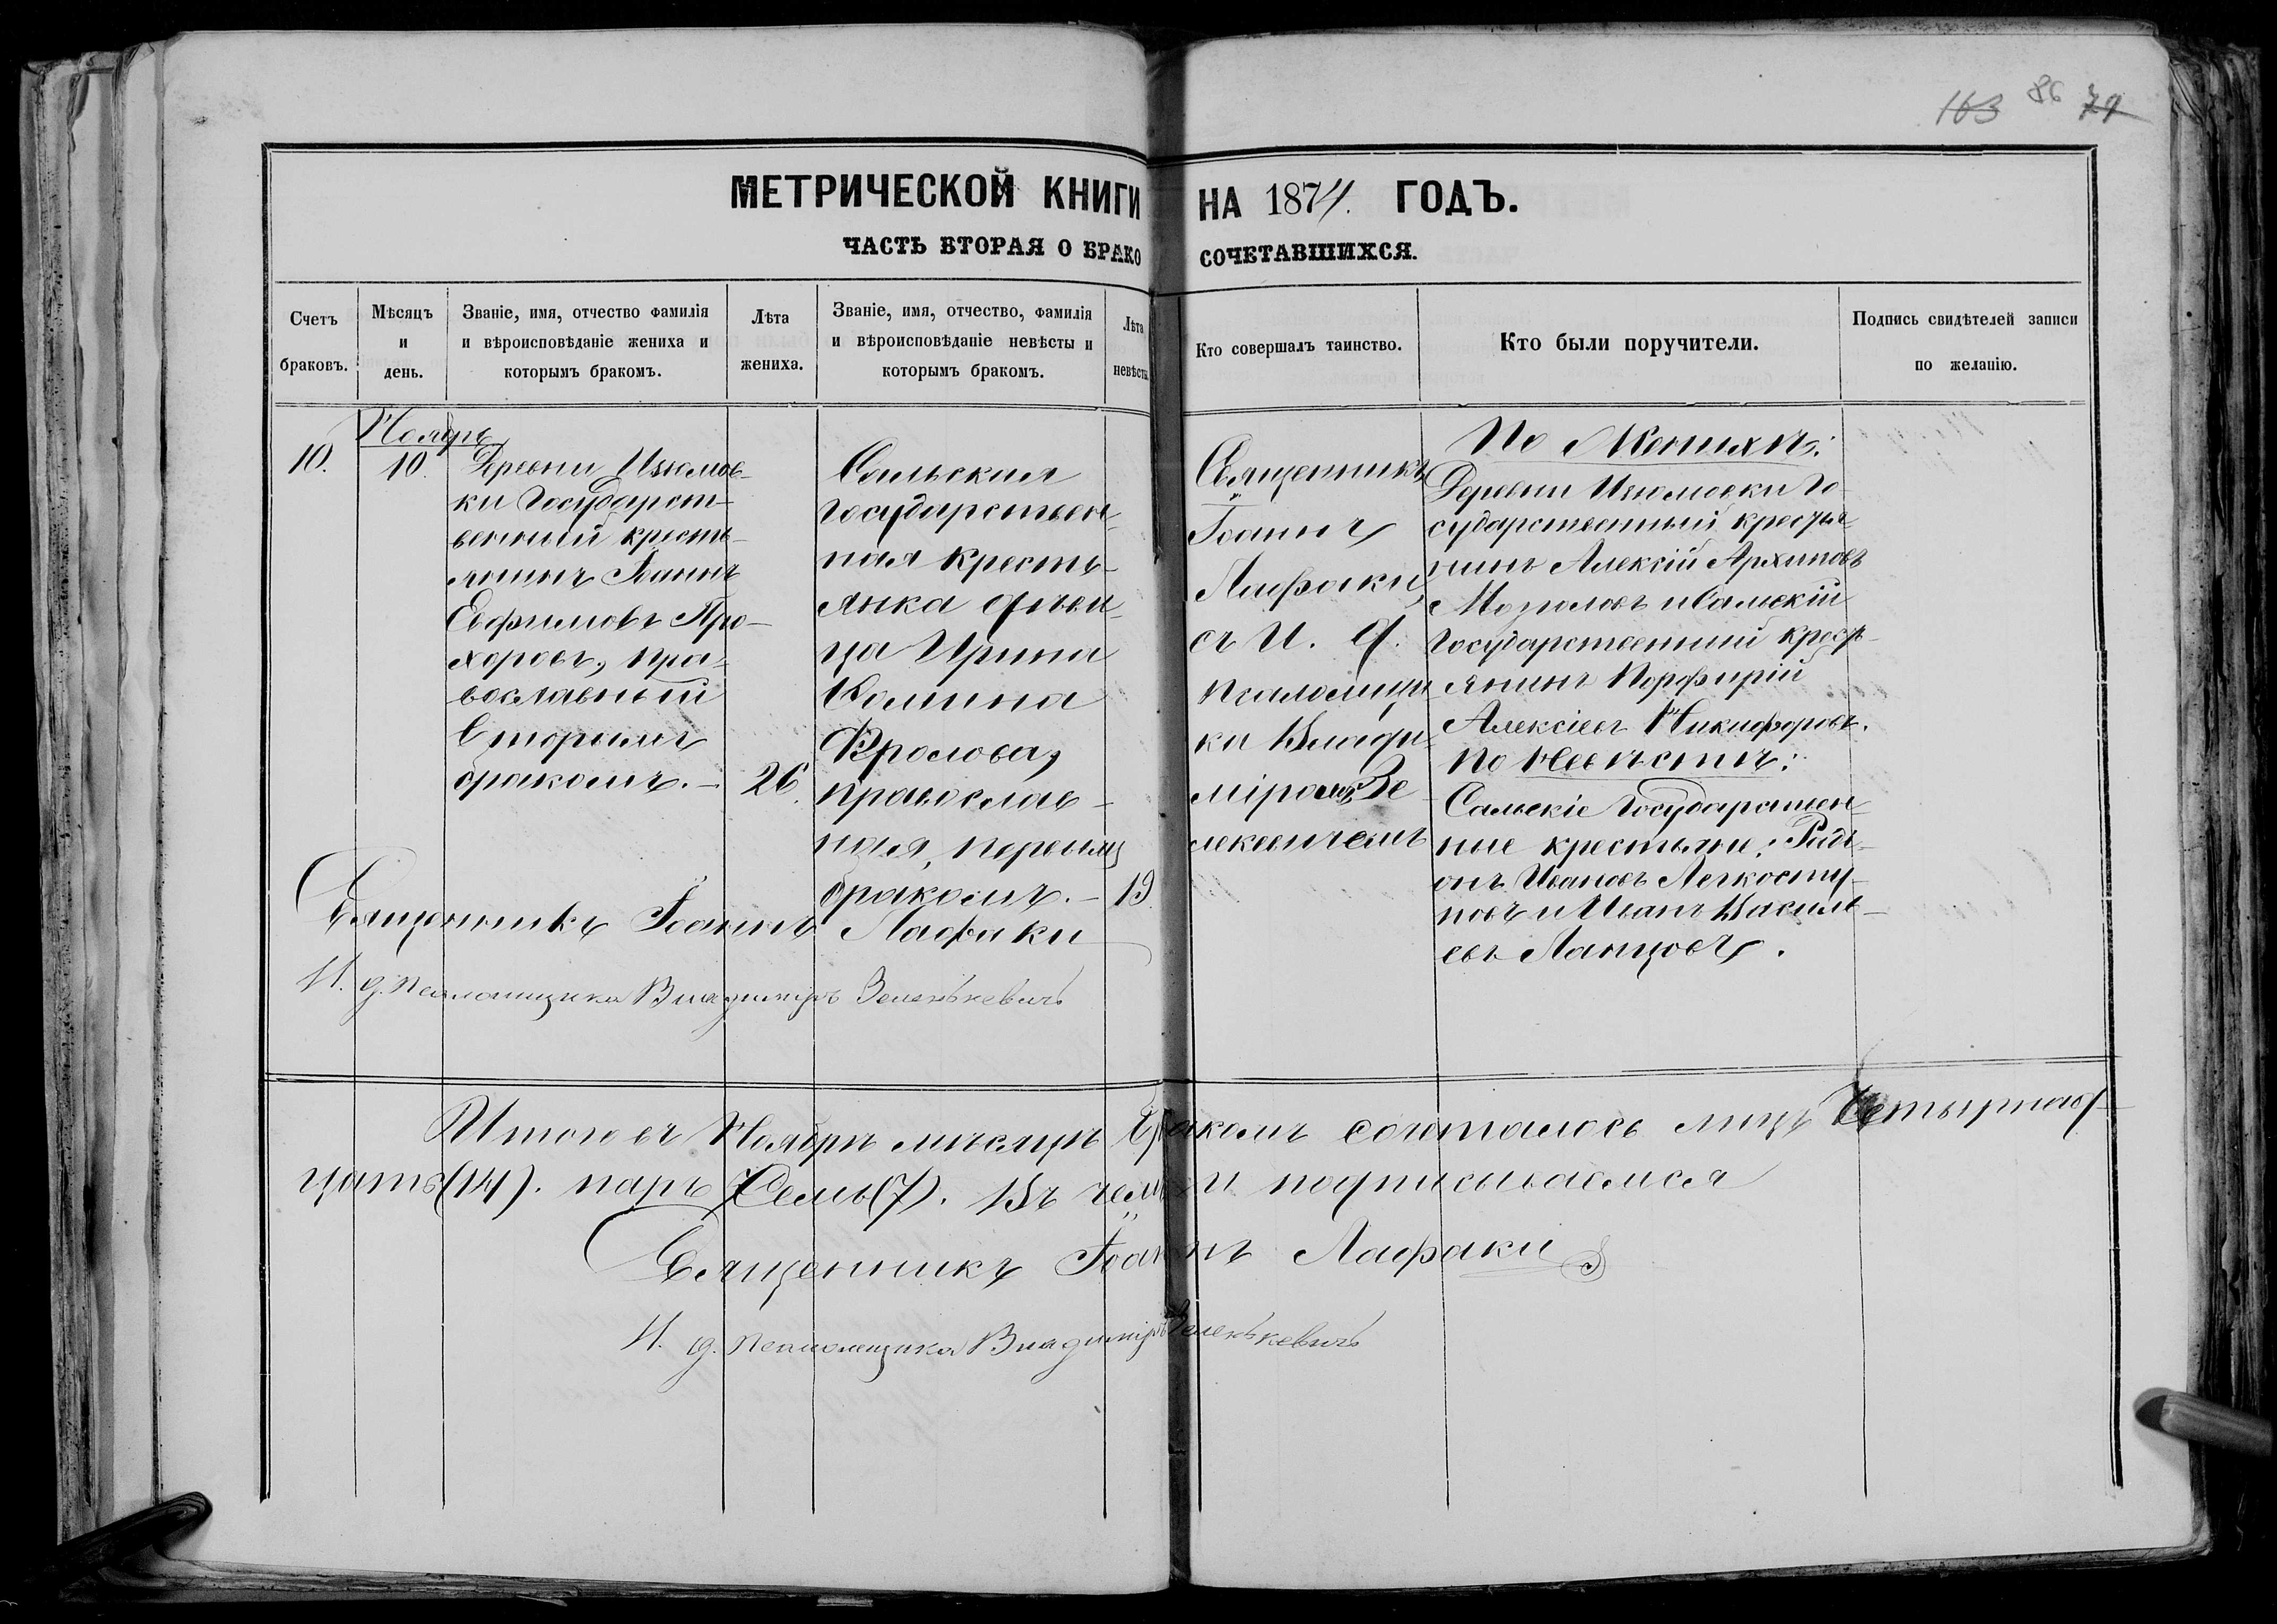 103 86 71
МЕТРИЧЕСКОЙ КНИГИ НА 1874. ГОДЪ.
ЧАСТЬ ВТОРАЯ О БРАКОСОЧЕТАВШИХСЯ.
Счетъ
браковъ.
Мѣсяцъ
и
день.
Званіе, имя, отчество фамилія
и вѣроисповѣданіе жениха и
которымъ бракомъ.
Лѣта
жениха.
Званіе, имя, отчество, фамилія
и вѣроисповѣданіе невѣсты и
которымъ бракомъ.
Лѣта
невѣсты
Кто совершалъ таинство.
Кто были поручители.
Подпись свидѣтелей записи
по желанію.
10.
Ноябрь
10.
Деревни Изюмов-
ки Государст-
венный кресть-
янинъ Іоаннъ
Евфимовъ Про-
хоровъ, пра-
вославный
вторымъ
бракомъ. —
26.
Сальская
Государствен-
ная кресть-
янка дѣви-
ца Ирина
Фролова,
православ-
ная, первымъ
бракомъ. —
19.
Священникъ
Іоаннъ
Лафаки,
съ И. д.
псаломщи-
ка Влади-
міромъ Зе-
лекевичемъ
По Женихѣ:
Деревни Изюмовки Го-
сударственный крестья-
нинъ Алексій Архиповъ
Мозолевъ и Сальскій
Государственный крестъ-
янинъ Порфирій
Алексіевъ Никифоровъ.
По Невѣстѣ:
Сальскіе Государствен-
ные крестьяне: Роді-
онъ Ивановъ Легкосту-
повъ и Иванъ Василь-
евъ Ланцовъ.
Священникъ Іоаннъ Лафаки
И. д. псаломщика Владиміръ Зеленкевичъ
Итого въ Ноябрѣ мѣсяцѣ бракомъ сочеталось лицъ Четырнад-
цать (14). паръ Семь (7). Въ чемъ и подписываемся
Священникъ Іоаннъ Лафаки
И. д. псаломщика Владиміръ Зеленкевичъ